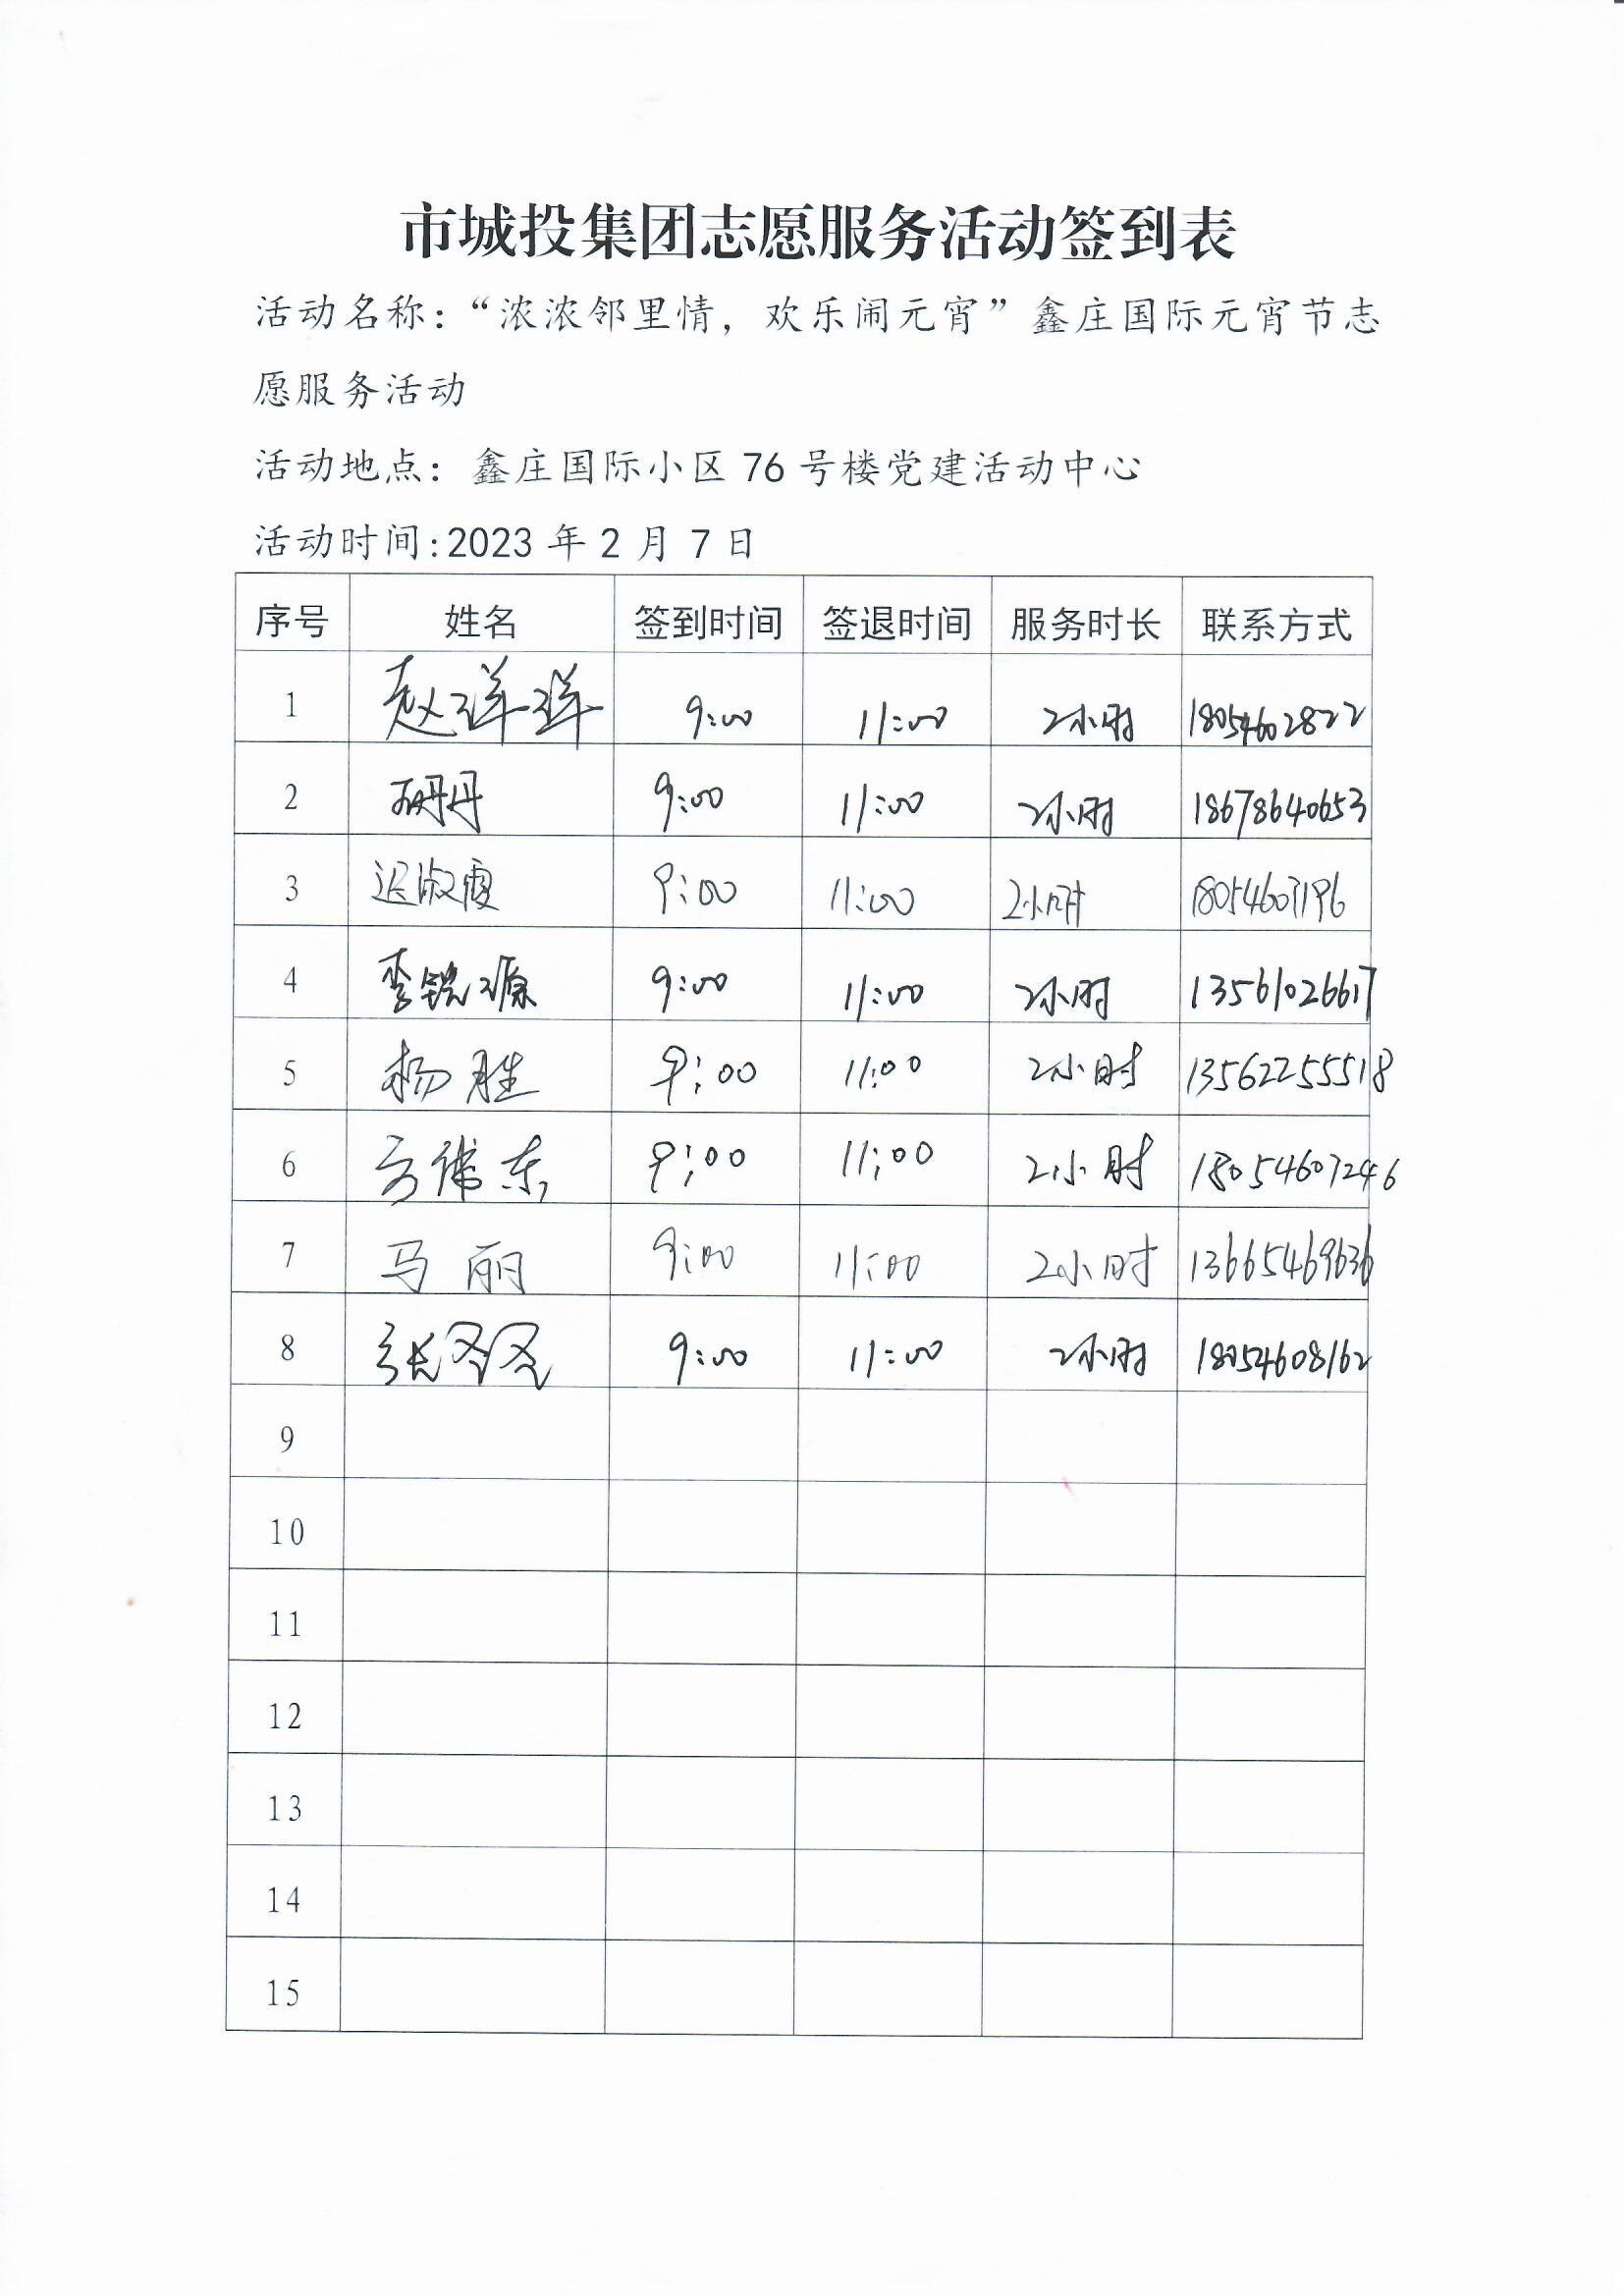 市城投集团志愿服务活动签到表
活动名称：“浓浓邻里情，欢乐闹元宵”鑫庄国际元宵节志
愿服务活动
活动地点：鑫庄国际小区 76 号楼党建活动中心
活动时间:2023 年 2 月 7 日
序号 姓名 签到时间 签退时间 服务时长 联系方式
1 赵洋洋 9:00 11:00 2小时 18054602822
2 丹丹 9:00 11:00 2小时 18678640653
3 迟淑霞 9:00 11:00 2小时
4 李锐源 9:00 11:00 2小时 13561026617
5 杨胜 9:00 11:00 2小时 13562255518
6 方伟东 9:00 11:00 2小时 18054607246
7 马丽 9:00 11:00 2小时 13665469636
8 张圣圣 9:00 11:00 2小时 18054608162
9
10
11
12
13
14
15